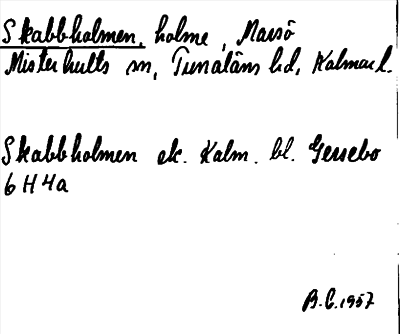 Skabbholmen, holme, Marsö
Misterhults sn, Tunaläns hd, Kalmar l.
Skabbholmen ek. Kalm. bl. Gersebo
6 H 4a
B.C. 1957